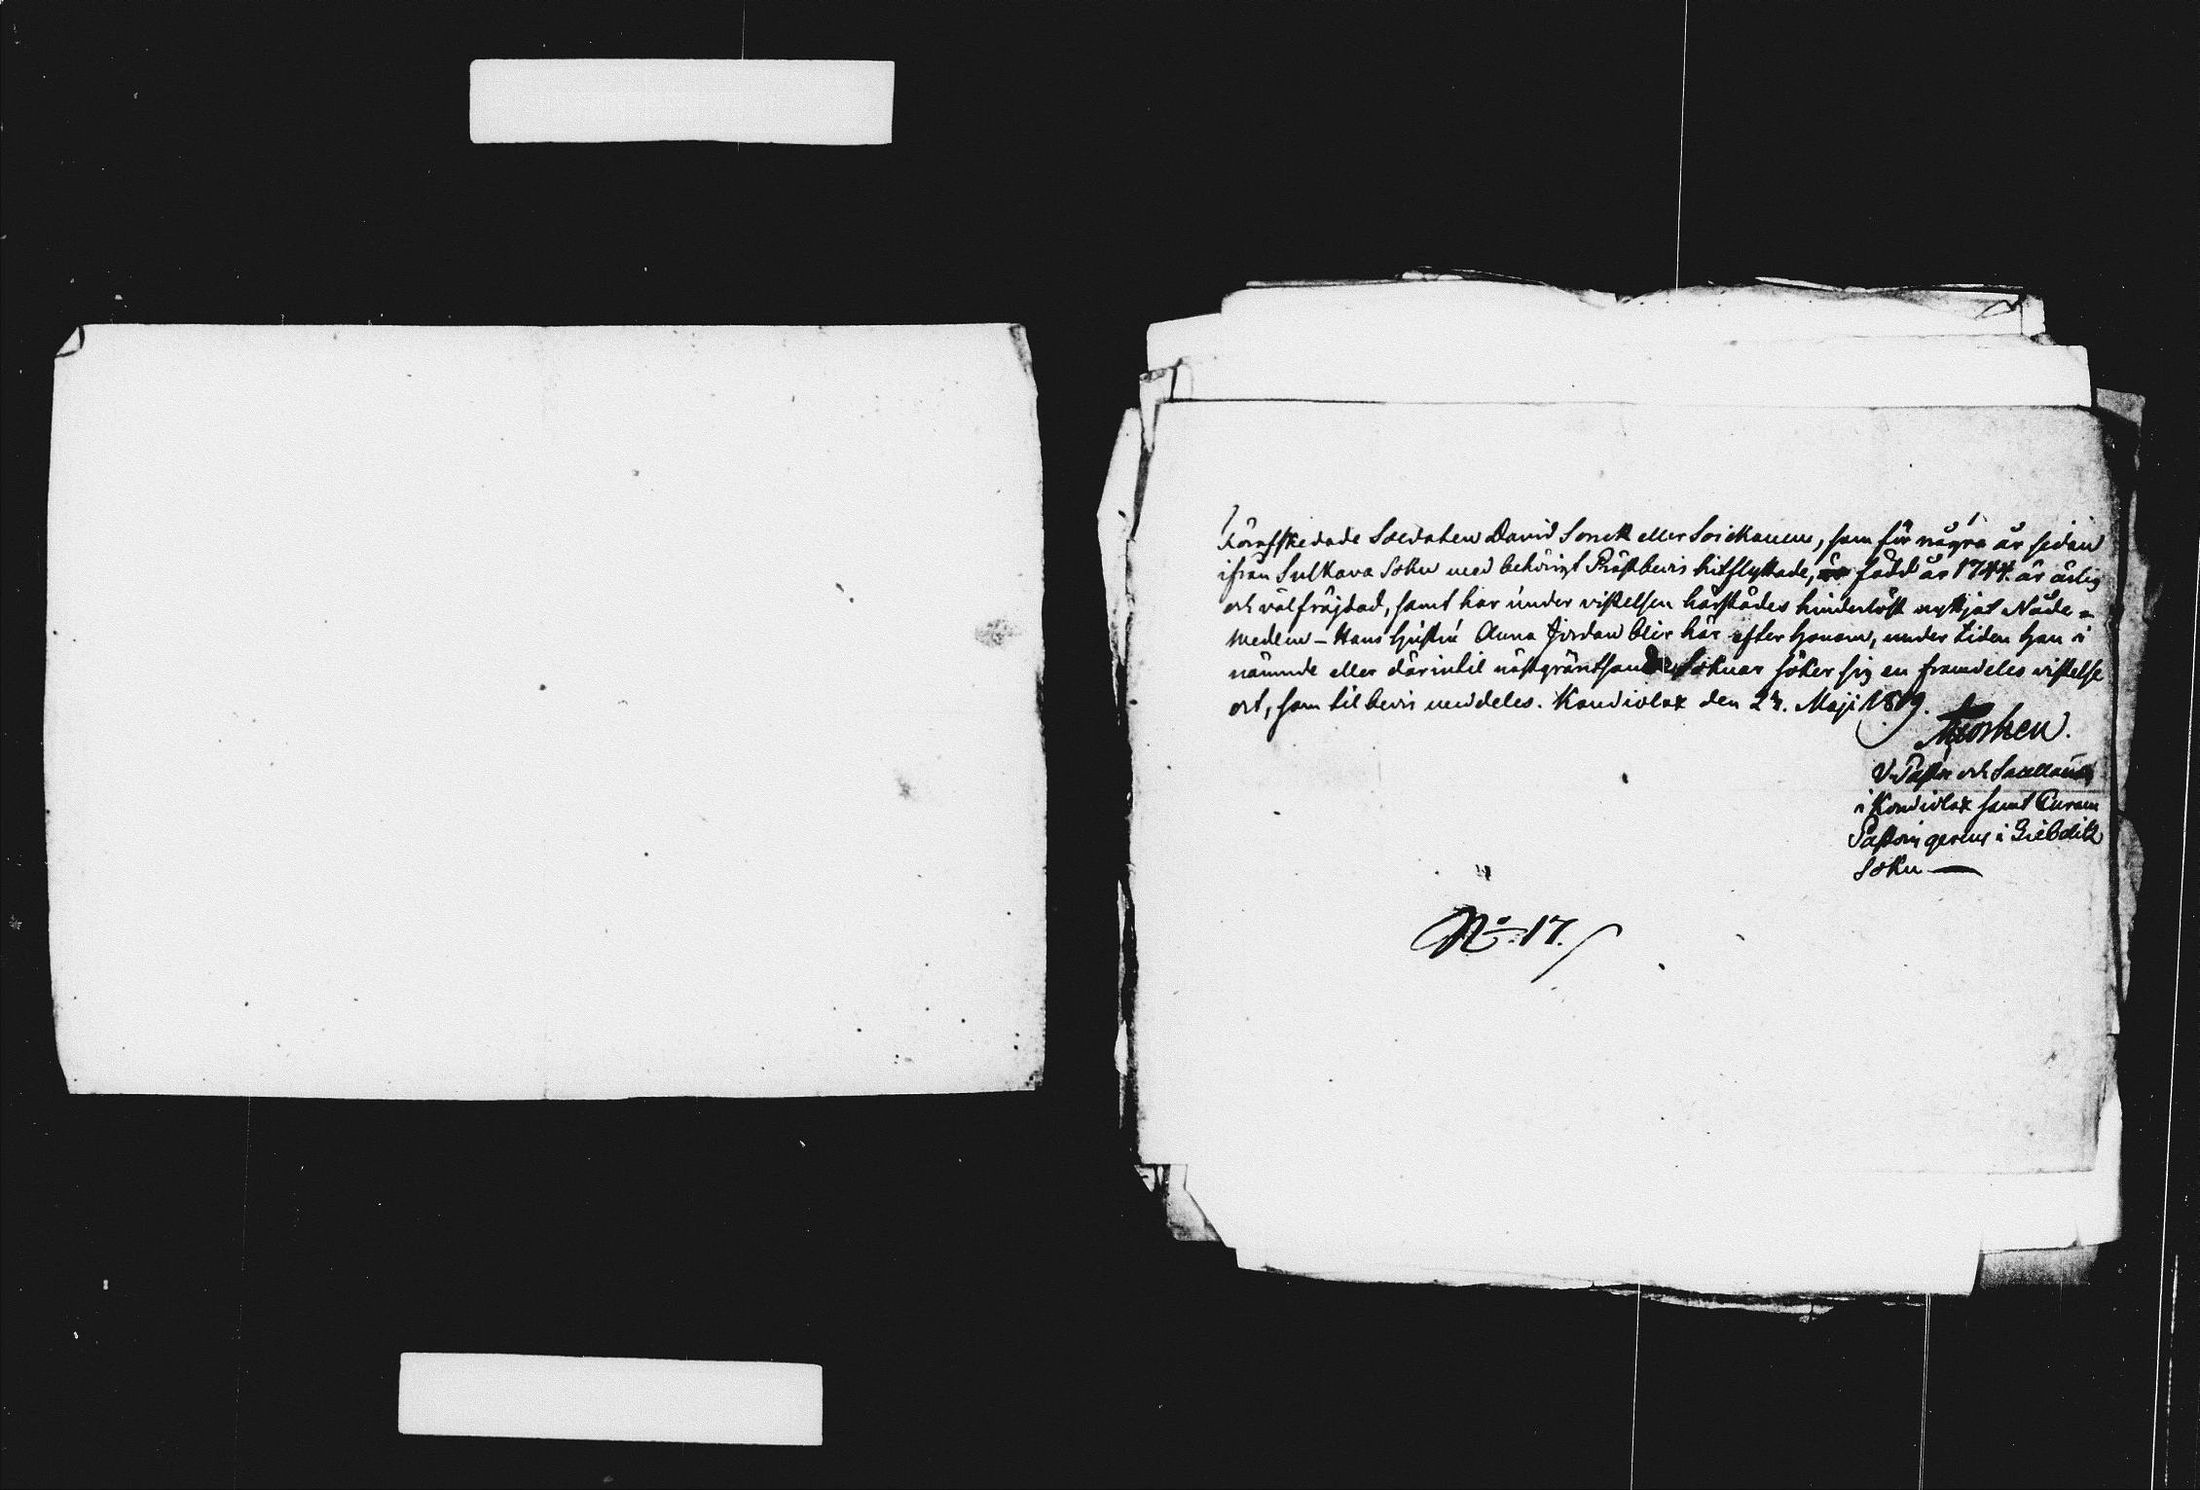 Förafskedade Soldaten David Sonck eller Soickanen, som för några år sedan
ifrån Sulkava Sokn med behörigt Prästbevis hitflyttade, född år 1744. är ärlig
och välfräjdad, samt har under vistelsen härstädes hinderlöst nyttjat Nåde-
medlen - Hans hustru Anna Jordan blir här efter honom, under tiden han i
nämnde eller därintil nästgräntsande Soknar söker sig en framdeles vistelse
ort, som til bevis meddeles. Kondiolax den 27. Maji 1819.
V. Pastor och Sacellanus
i Kondiolax samt Curam
Pastoris gerens i Liebelitz
Sokn
No: 17.